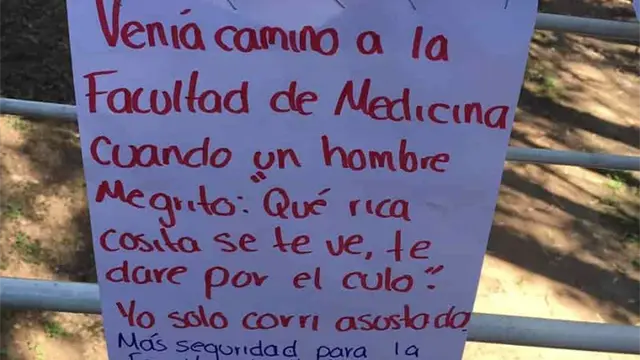 Venía camino a la
Facultad de Medicina
cuando un hombre
Me grito: "Qué rica
cosita se te ve, te
dare por el culo".
Yo solo corri asustada
Más seguridad para la